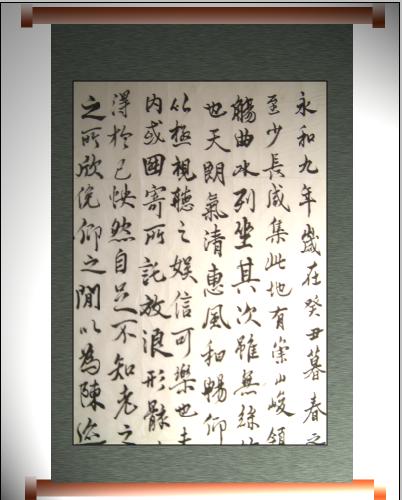 永和九年歲在癸丑暮春之
至少長咸集此地有崇山峻領
觴曲水列坐其次雖無絲
也天朗氣清惠風和暢仰
以極視聽之娛信可樂也夫
内或因寄所託放浪形骸
得於己怏然自足不知老之
之所欣俛仰之閒以為陳迹